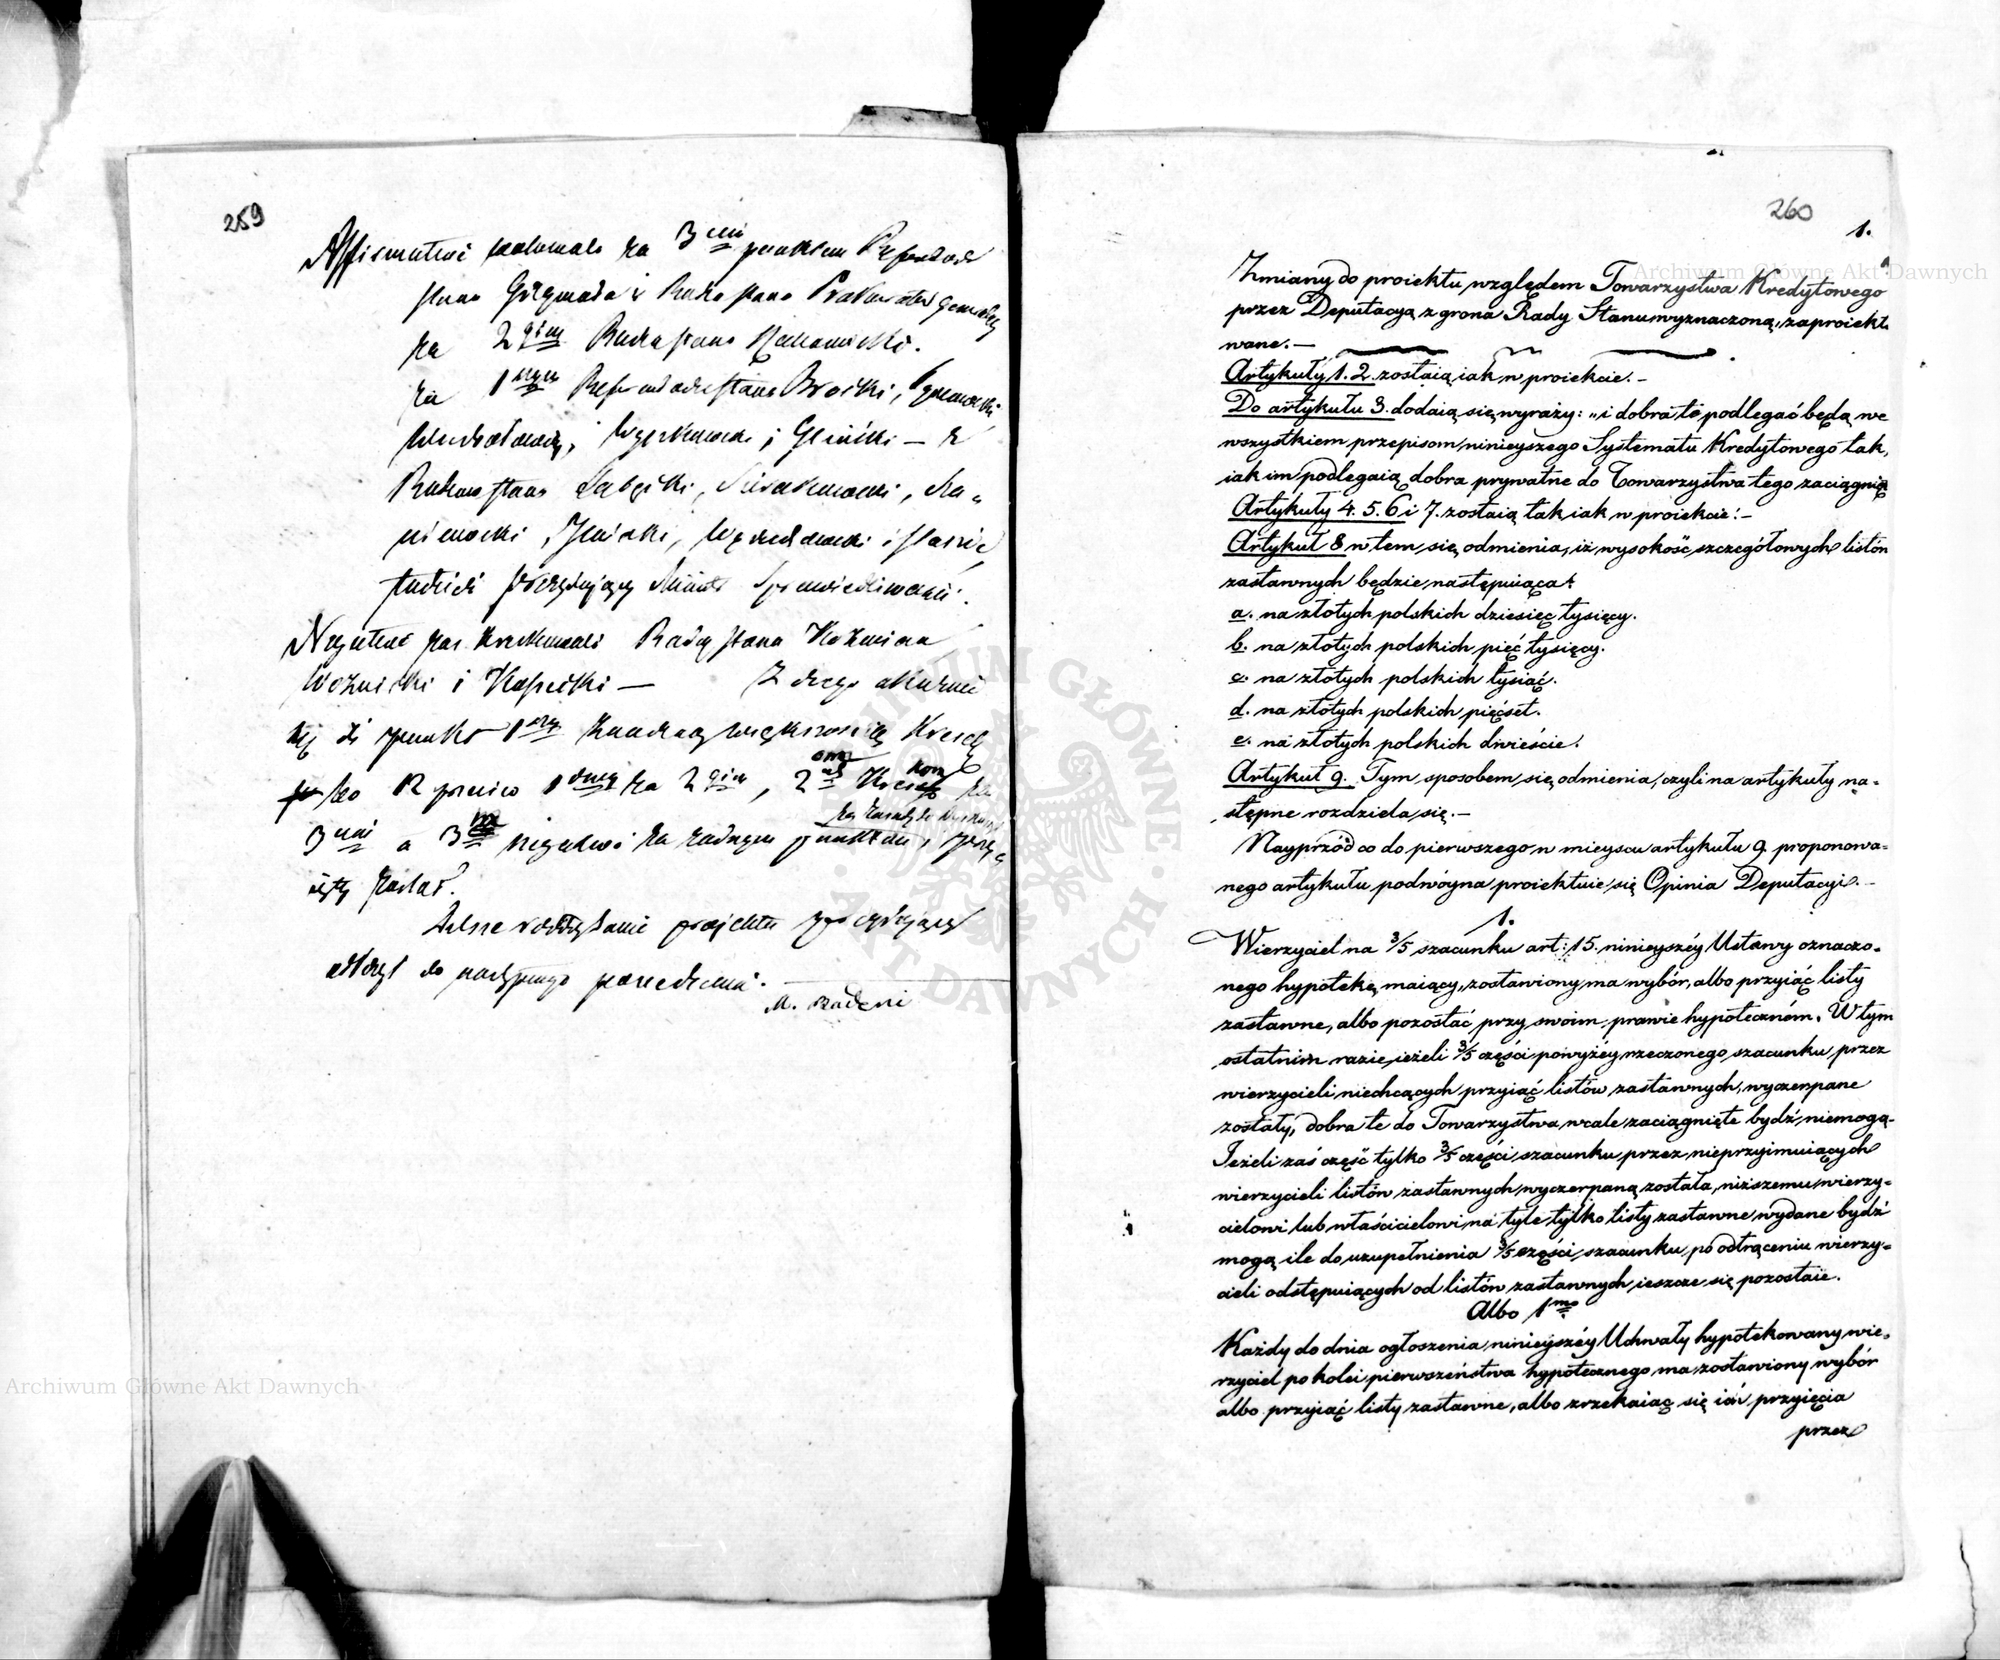 259
Affirmative wotowało za 3cim punktem Referendarz
Stanu Grzymała i Radca Stanu Prokurator Generalny
za 2gim Radca Stanu
za 1szym Referendarze Stanu Brocki,
i Gliński — z
Radców Stanu
i Staszic
tudzież prezydujący Minister Sprawiedliwości.
Negative zaś kreskowali Radcy Stanu Koźmian
Woźnicki i Kossecki — Z czego okazuie
się że punkt 1szy znaczną większością kresek
bo 12 przeciw 1dney za 2gim, 2om kreskom za
3cim a 3m negative za żadnym punktem, przy-
ięty został.
Dalsze roztrząsanie projektu prezydujący
odłożył do następnego posiedzenia.
M. Badeni
260
1.
Zmiany do proiektu względem Towarzystwa Kredytowego
przez Deputacyą z grona Rady Stanu wyznaczoną, zaproiekto
wane. —
Artykuły 1. 2. zostaią iak w proiekcie. –
Do artykułu 3. dodaią się wyrazy: „i dobra te podlegać będą we
wszystkiem przepisom ninieyszego Systematu Kredytowego tak,
iak im podlegaią dobra prywatne do Towarzystwa tego zaciągnię
Artykuły 4. 5. 6 i 7. zostaią tak iak w proiekcie: –
Artykuł 8 w tem się odmienia, iż wysokość szczegółowych listów
zastawnych będzie następuiąca:
a. na złotych polskich dziesięć tysięcy.
b. na złotych polskich pięć tysięcy.
c. na złotych polskich tysiąc.
d. na złotych polskich pięćset.
e. na złotych polskich dwieście.
Artykuł 9. Tym sposobem się odmienia, czyli na artykuły na-
stępne rozdziela się. —
Nayprzód co do pierwszego w mieyscu artykułu 9. proponowa-
nego artykułu podwóyna proiektuie się Opinia Deputacyi. –
1.
Wierzyciel na 3/5 szacunku art: 15. ninieyszéy Ustawy oznaczo-
nego hypotekę maiący, zostawiony ma wybór, albo przyiąć listy
zastawne, albo pozostać przy swoim prawie hypoteczném. W tym
ostatnim razie ieżeli 3/5 części powyżéy rzeczonego szacunku przez
wierzycieli niechcących przyiąć listów zastawnych, wyczerpane
zostały, dobra te do Towarzystwa wcale zaciągnięte bydź niemogą.
Ieżeli zaś część tylko 3/5 części szacunku przez nieprzyimuiących
wierzycieli listów zastawnych wyczerpaną została, niższemu wierzy-
cielowi lub właścicielowi na tyle tylko listy zastawne wydane bydź
mogą ile do uzupełnienia 3/5 części szacunku, po odtrąceniu wierzy-
cieli odstępuiących od listów zastawnych ieszcze się pozostaie.
Albo 1mo
Każdy do dnia ogłoszenia ninieyszéy Uchwały hypotekowany wie-
rzyciel po kolei pierwszeństwa hypotecznego ma zostawiony wybór
albo przyiąć listy zastawne, albo zrzekaiąc się ich przyięcia
przez
Archiwum Główne Akt Dawnych
Archiwum Główne Akt Dawnych
ARCHIWUM GŁÓWNE · AKT DAWNYCH ·